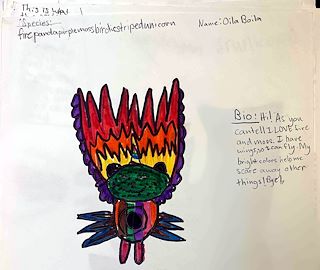 This is my
Species:
firepandapurplemossbirdiestripedunicorn
Name: Oila Boila
Bio: Hi! As you
can tell I LOVE fire
and moss. I have
wings, so I can fly. My
bright colors help me
scare away other
things! Bye!